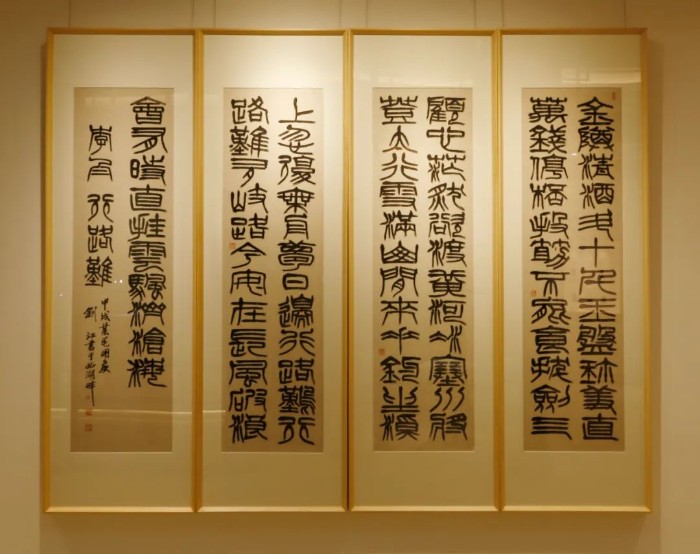 金樽清酒斗十千玉盤珍羞直
萬錢停杯投箸不能食拔劍亖
顧心茫然欲渡黃河冰塞川將
登太行雪滿山閒來垂釣坐溪
上忽復乘舟夢日邊行路難行
路難多歧路今安在長風破浪
會有時直挂雲帆濟滄海
李白行路難
甲戌國慶
劉江書于西湖畔